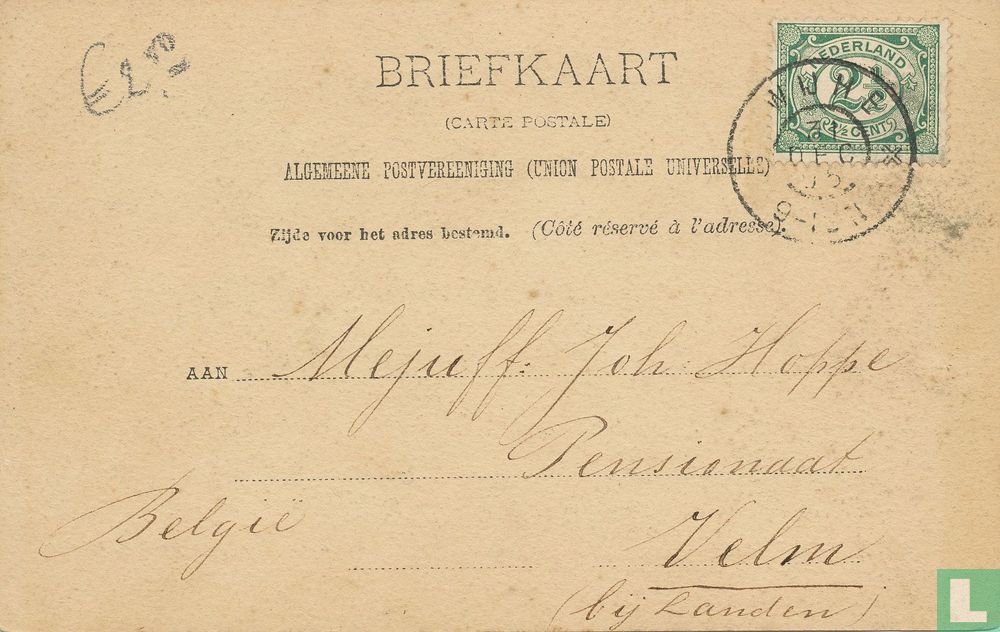 BRIEFKAART
(CARTE POSTALE)
ALGEMEENE POSTVEREENIGING (UNION POSTALE UNIVERSELLE)
Zijde voor het adres bestemd. (Côté réservé à l'adresse).
NEDERLAND
2½
2½ CENT
WIJHE
DEC
AAN Mejuff: Joh Hoppe
Pensionaat
België
Velm
(bij Landen)
L